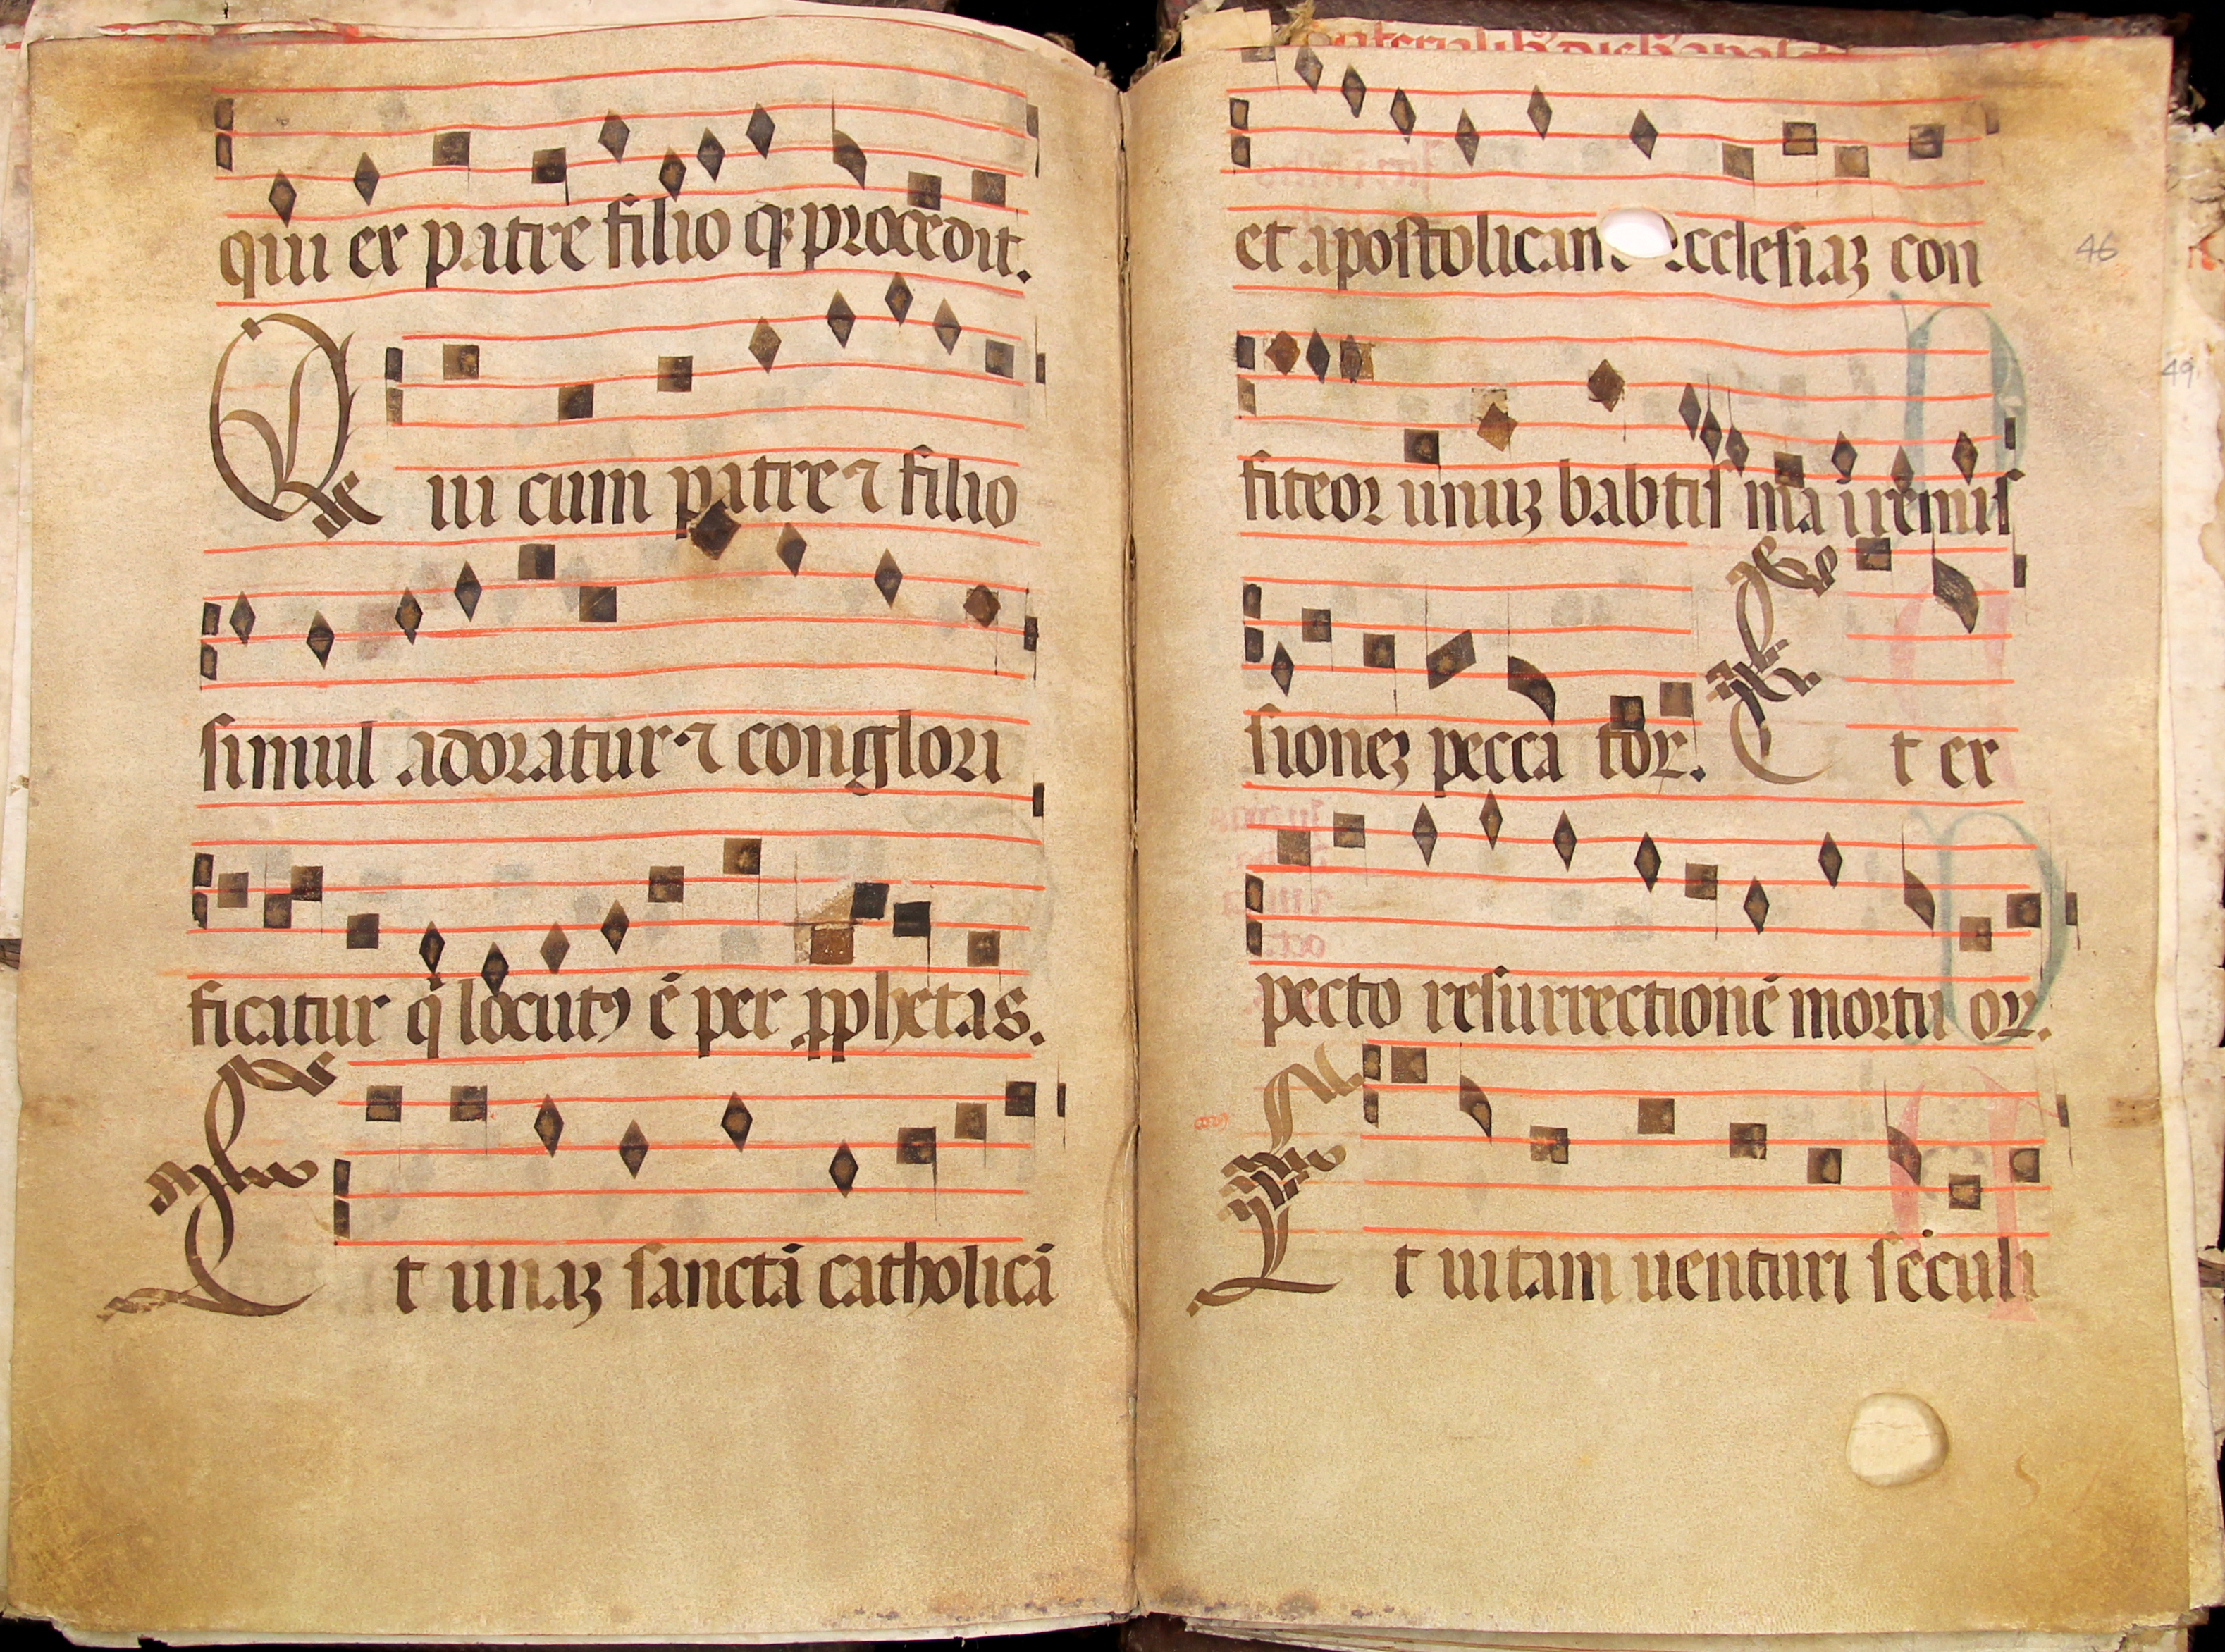 qui ex patre filio qꝫ procedit.
Qui cum patre ⁊ filio
simul adoratur ⁊ conglori
ficatur q̇ locutꝰ ē per ꝓphetas.
Et unaꝫ sanctā catholicā
et apostolicam ecclesiaꝫ con
46
49
fiteor unuꝫ babtis ma ī remis
sioneꝫ pecca toꝝ. Et ex
pecto resurrectionē mortu oꝝ.
Et uitam uenturi seculi